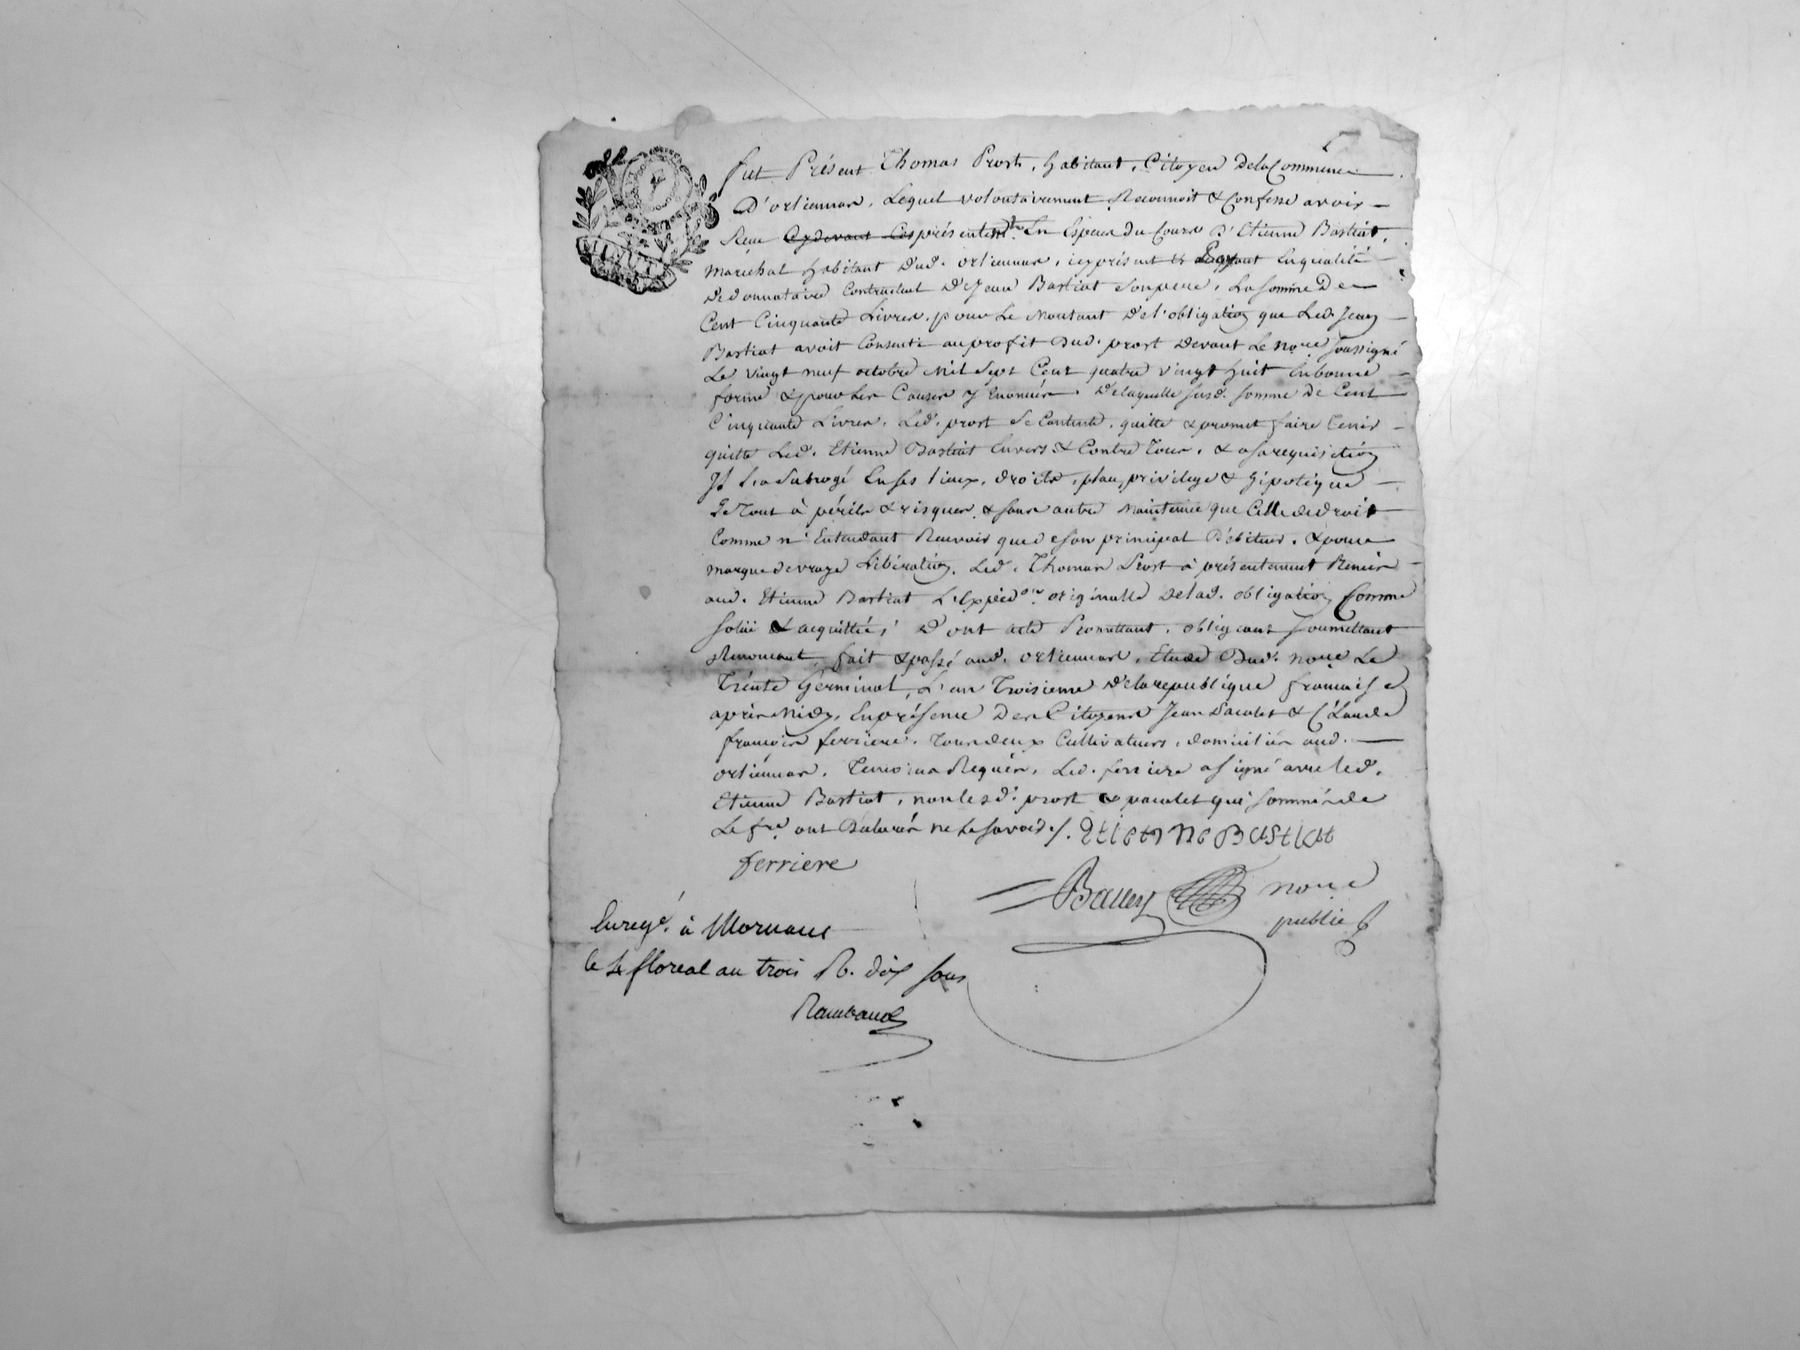 fut Présent Thomas Prost, habitant, Citoyen dela Commune
D'orliennas, Lequel volontairement Reconnoit & Confesse avoir
Reçu Cydevant Ces présentemt. En Espece du Cours D'Etienne Bastiat,
maréchal habitant dud. orliennas, icy présent & Payant Enqualité
de donnataire Contractuel De Jean Bastiat Son pere, La Somme De
Cent Cinquante Livres, pour Le Montant De l'obligation que Led. Jean
Bastiat avoit Consentie au profit Dud. prost devant Le nore. Soussigné
Le vingt neuf octobre Mil Sept Cent quatre vingt huit En bonne
forme & pour Les Causes y Enoncées. De laquelle susd. Somme de Cent
Cinquante Livres, Led. prost Se Contente, quitte & promet faire Tenir
quitte Led. Etienne Bastiat Envers & Contre Tous, & a sa requisition
Il L'a Subrogé En ses lieux, droits, place, privilege & hipotéque
Le Tout à périls & risques, & Sans autre Maintenue que Celle de droit
Comme n'Entendant Recevoir que de Son principal Débiteur, & pour
marque de vraye Libération, Led. Thomas Prost à présentement Remis
aud. Etienne Bastiat L'Expédon. originalle De lad. obligation Comme
Solüe & acquittée, dont acte Promettant, obligeant Soumettant
Renonçant, fait & passé aud. orliennas, Etude Dud. nore. Le
Trente Germinal, L'an Troisieme De la republique françaises
après Midy, En présence Des Citoyens Jean Pacalet & Claude
françois ferriere, Tous deux Cultivateurs, domiciliés aud.
orliennas, Temoins Requis, Led. ferriere a Signé avec led.
Etienne Bastiat, non lesd. prost & pacalet qui Sommés de
Le fre. ont Déclarés ne Le Savoir./. Etienne Bastiat
ferriere
Balley nore
public
Enregé. à Mornant
le 4 floreal an trois R. dix sous
Rambaud